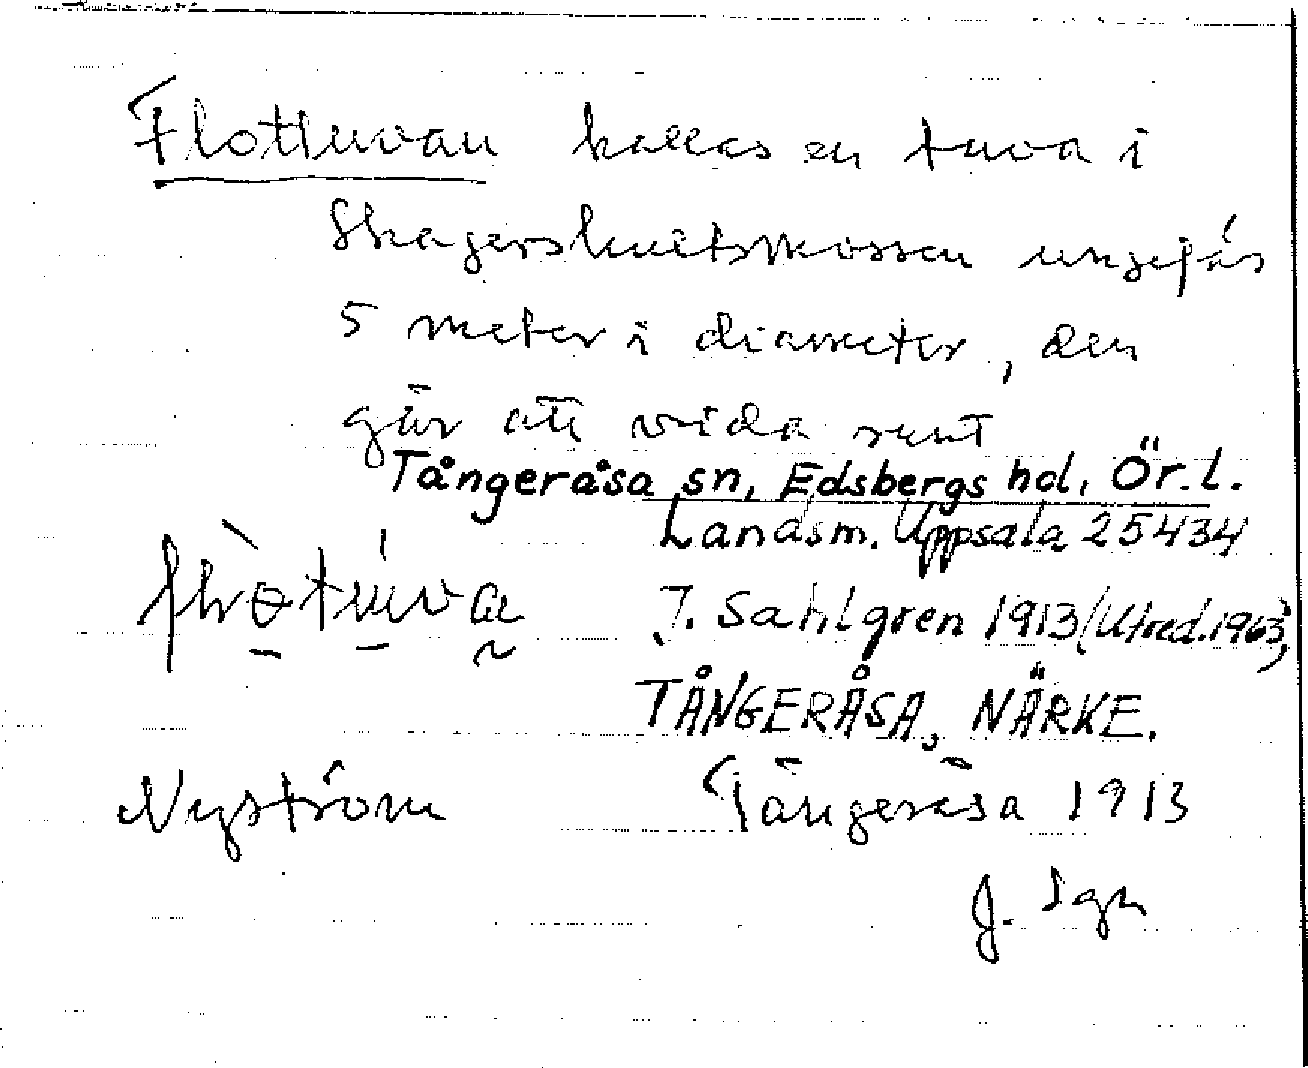 Flottuvan kallas en tuva i
Skagershultsmossen ungefär
5 meter i diameter, den
går att vrida runt
Tångeråsa sn, Edsbergs hd, Ör.l.
Landsm. Uppsala 25434
J. Sahlgren 1913 (Utred. 1963)
TÅNGERÅSA, NÄRKE.
Nyström Tångeråsa 1913
J. Sgn